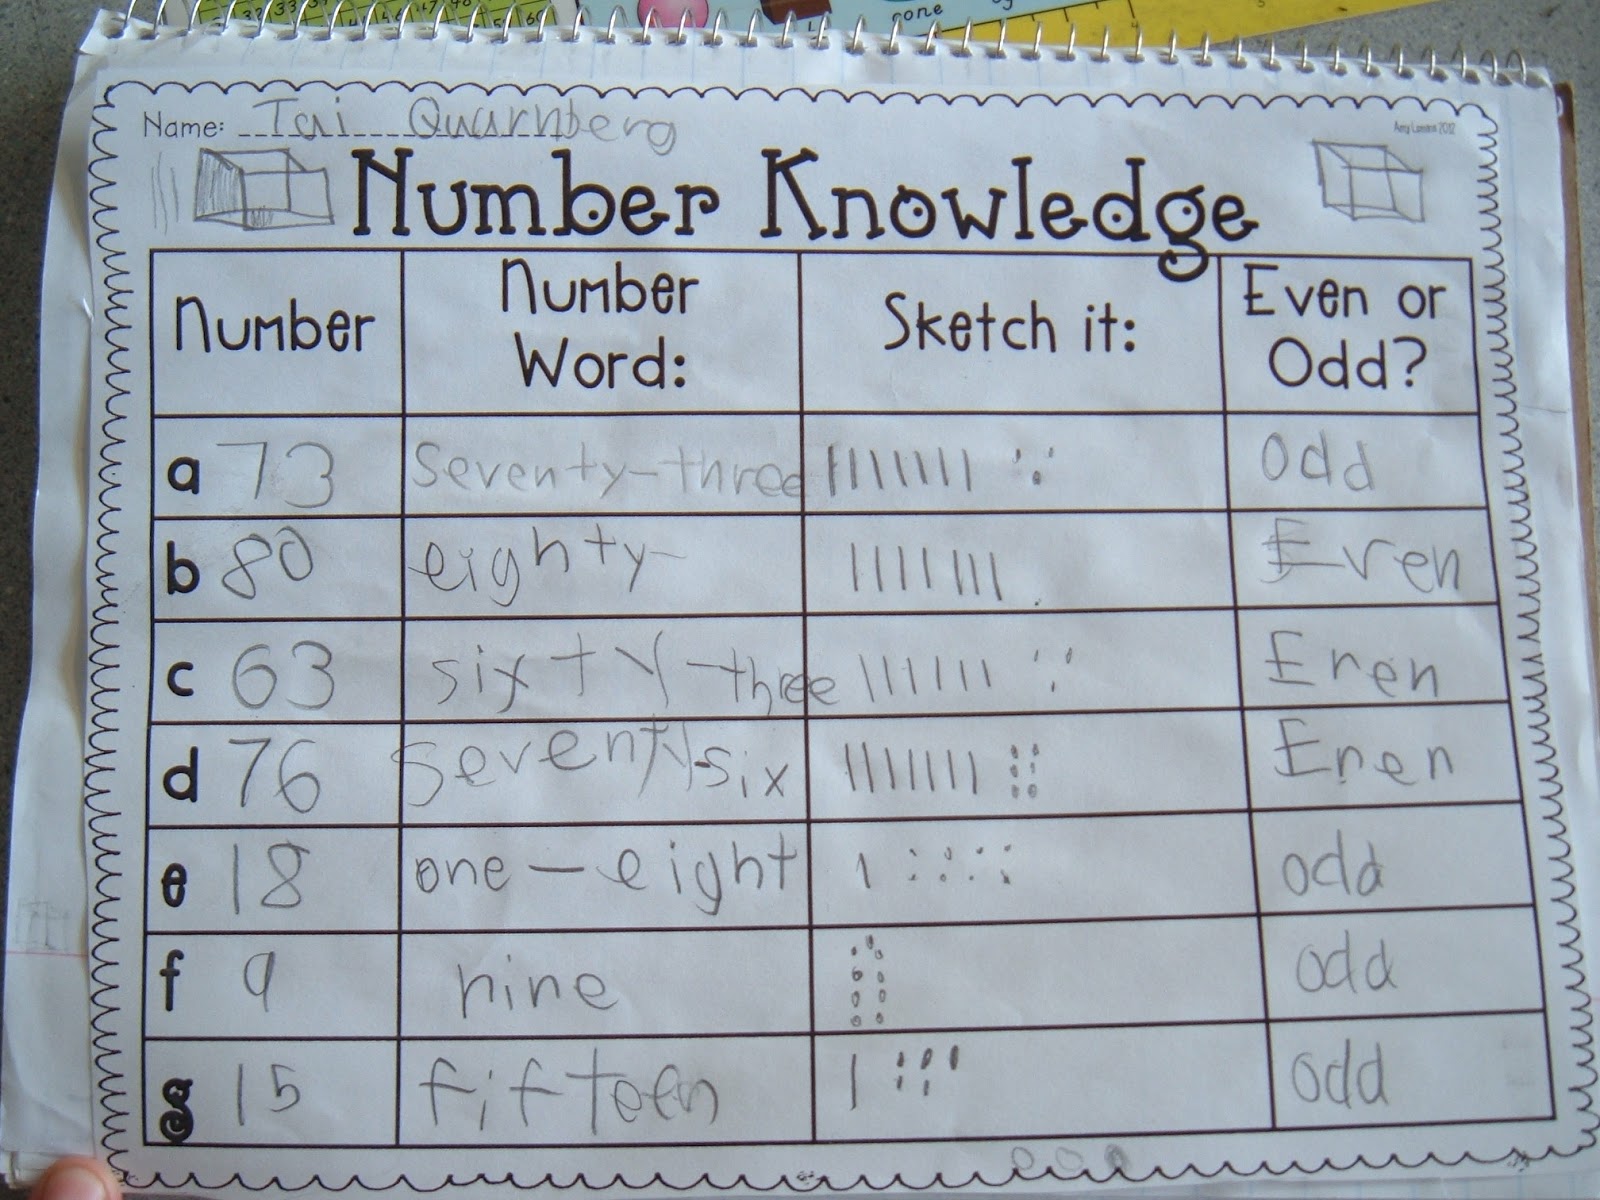 cone
Name: Tai Quarnberg
Amy Lemons 2012
Number Knowledge
Number
Number Word:
Sketch it:
Even or Odd?
a 73 seventy-three odd
b 80 eighty- Even
c 63 sixty-three Even
d 76 seventy-six Even
e 18 one-eight odd
f 9 nine odd
g 15 fifteen odd